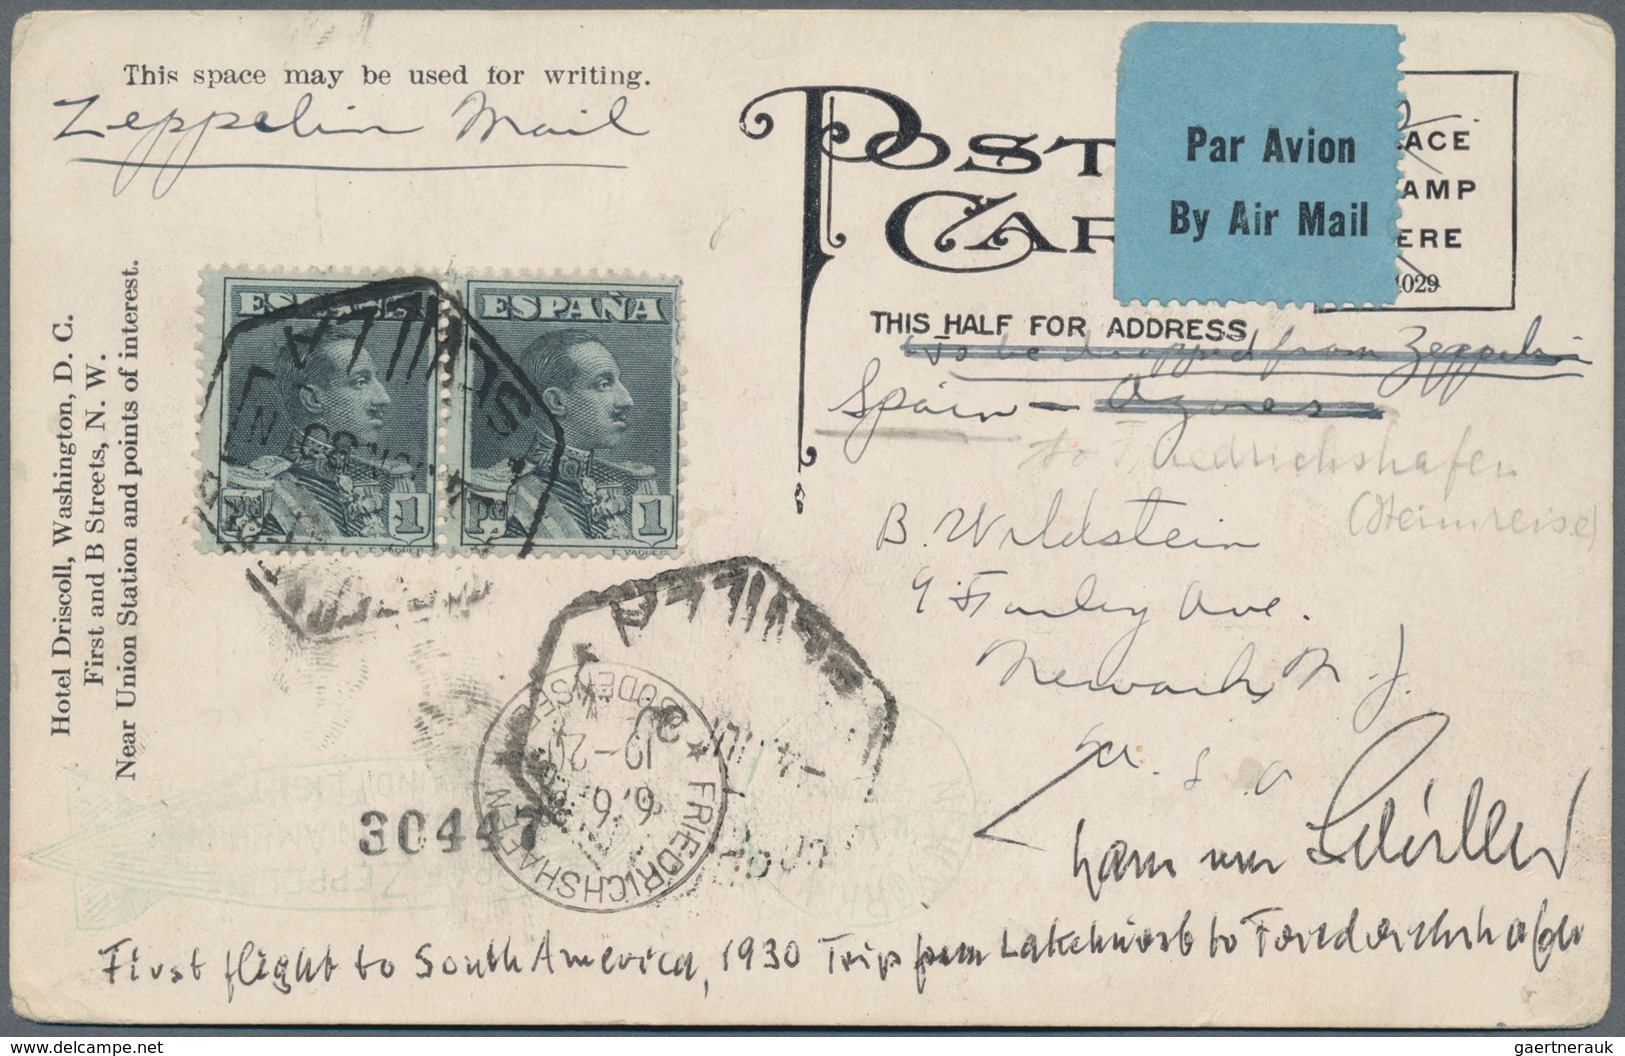 This space may be used for writing.
Zeppelin Mail
POST CAR
Par Avion
By Air Mail
ACE
AMP
ERE
1029
THIS HALF FOR ADDRESS
To be dropped from Zeppelin
Spain - Azores
to Friedrichshafen
(Heimreise)
B. Wildstein
9 Farley Ave.
Newark N. J.
U. S. A
Hotel Driscoll, Washington, D. C.
First and B Streets, N. W.
Near Union Station and points of interest.
ESPAÑA
1
ESPAÑA
1
SEVILLA
SEVILLA
FRIEDRICHSHAFEN
BODENSEE
6.6.
19-20
30447
Hans von Schiller
First flight to South America, 1930 Trip from Lakehurst to Friedrichshafen
gaertnerauk